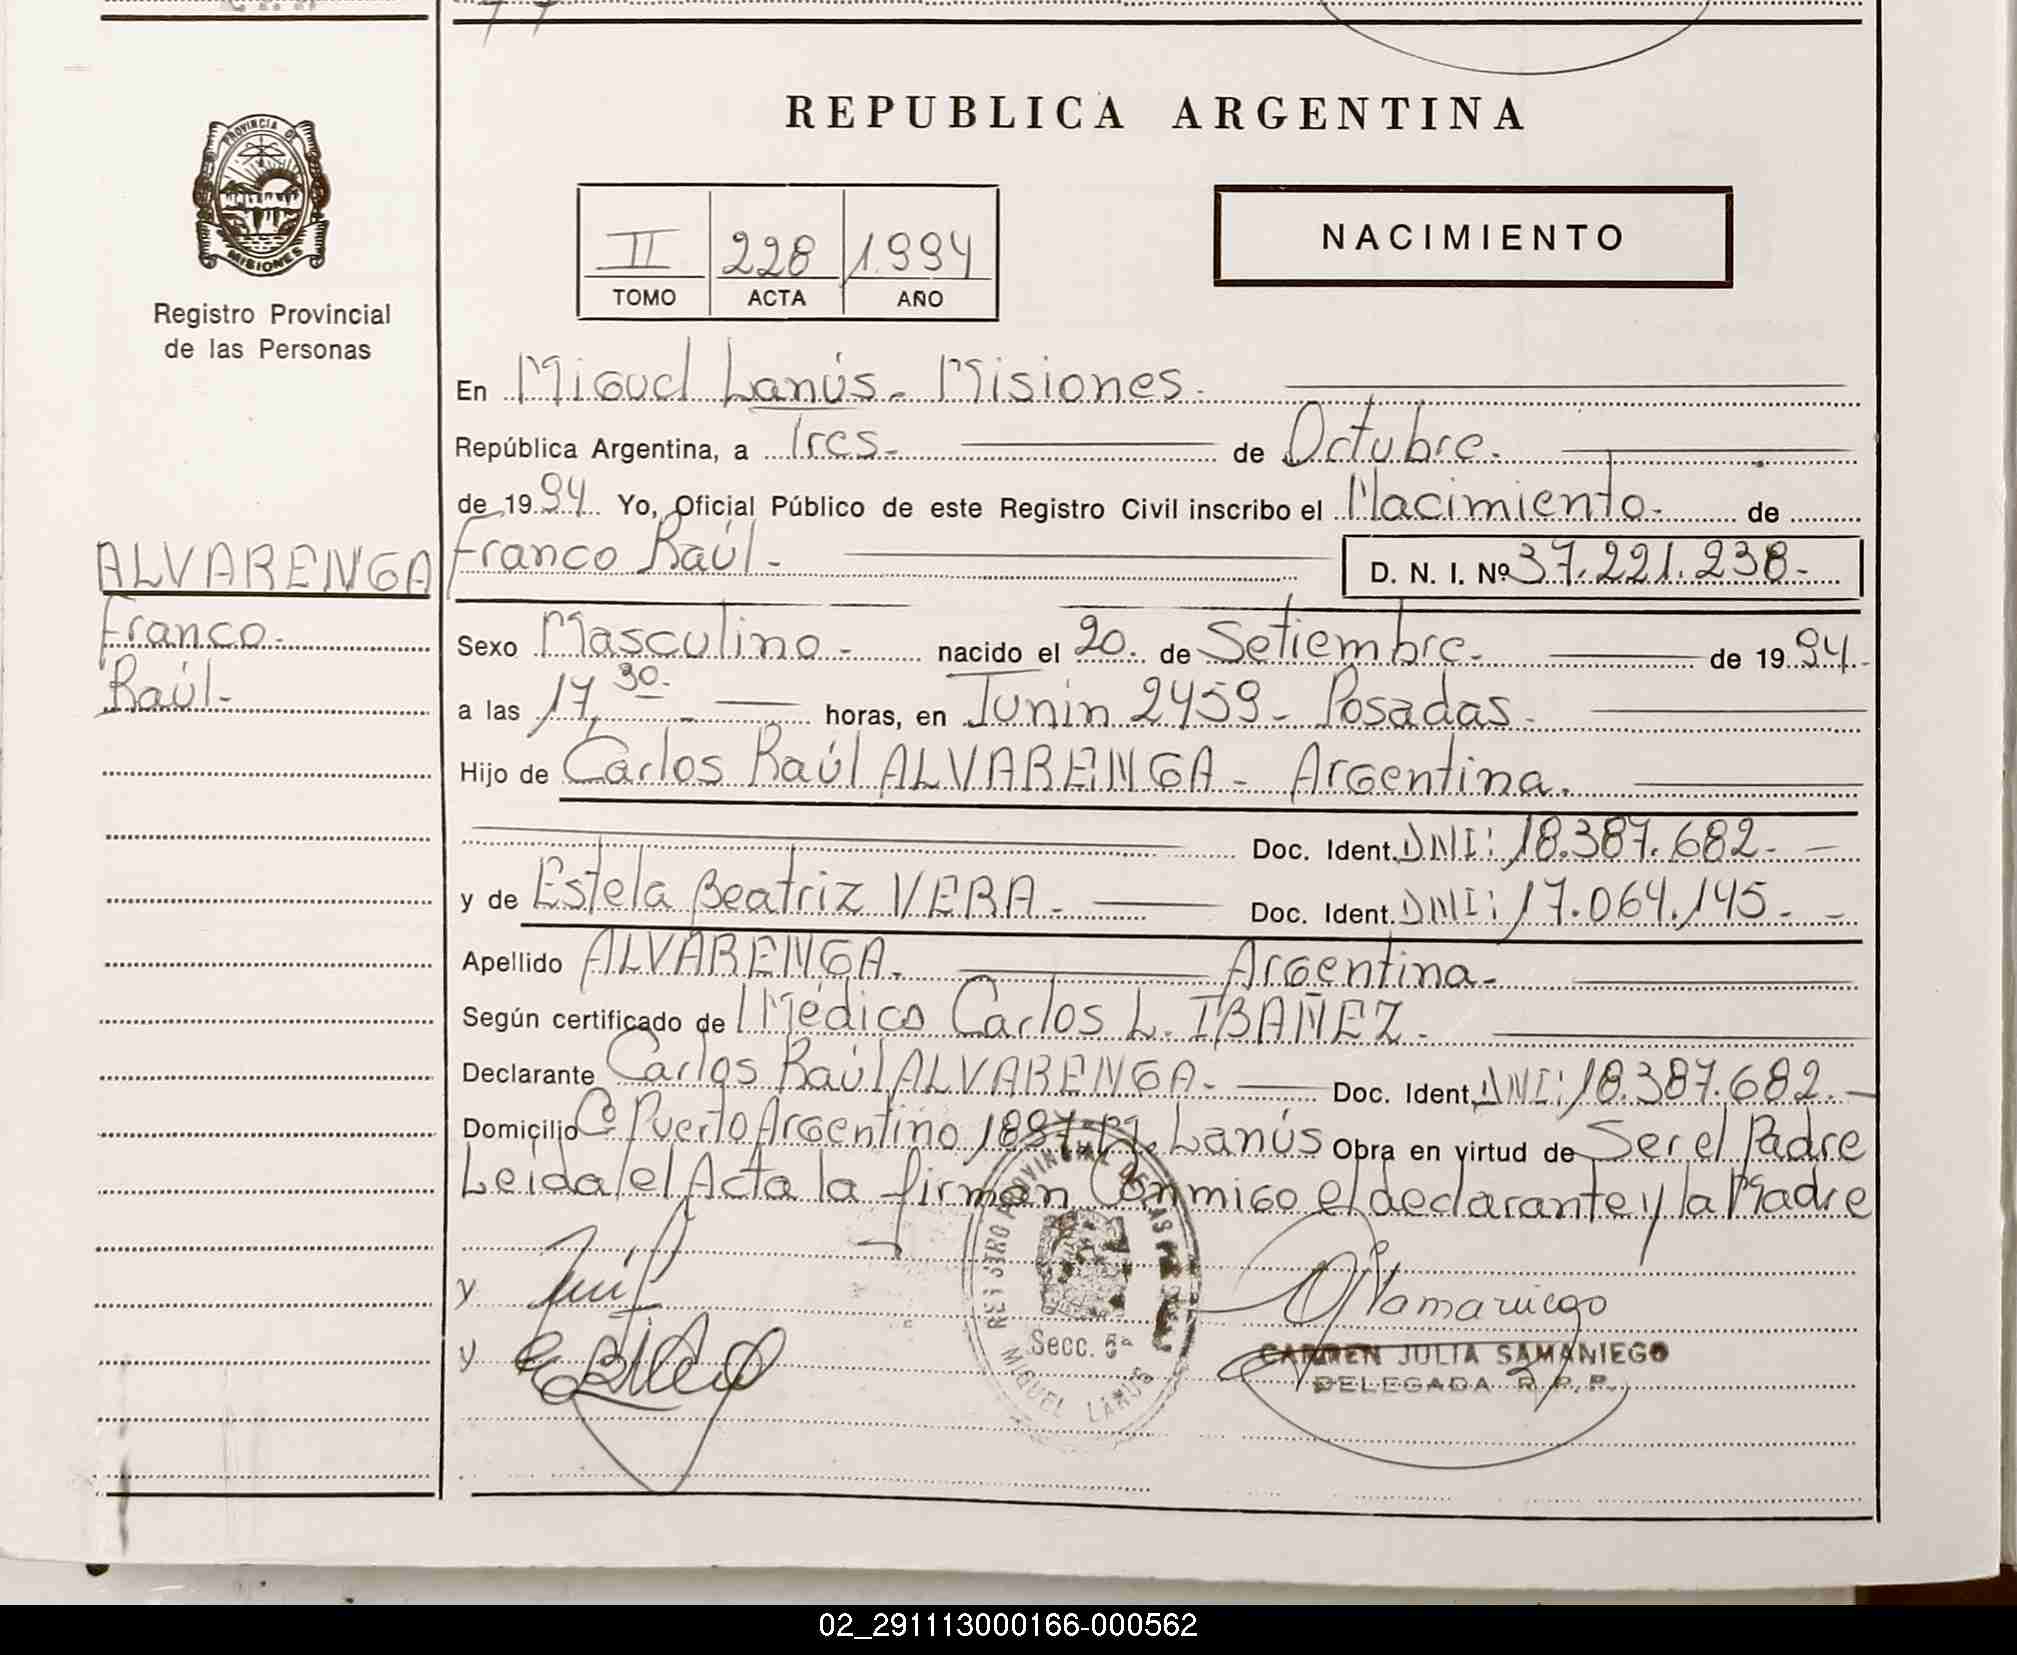 REPUBLICA ARGENTINA
PROVINCIA DE
MISIONES
Registro Provincial
de las Personas
II 228 1.994
TOMO ACTA AÑO
NACIMIENTO
En Miguel Lanús - Misiones.
República Argentina, a Tres - de Octubre.
de 1994 Yo, Oficial Público de este Registro Civil inscribo el Nacimiento - de
Franco Raúl - D. N. I. Nº 37.221.238-
ALVARENGA
Franco.
Raúl-
Sexo Masculino - nacido el 20. de Setiembre - de 1994.
a las 17,30. horas, en Junin 2459 - Posadas.
Hijo de Carlos Raúl ALVARENGA - Argentina.
Doc. Ident. DNI: 18.387.682-
y de Estela Beatriz VERA - Doc. Ident. DNI: 17.064.145-
Apellido ALVARENGA. Argentina-
Según certificado de Médico Carlos L. IBAÑEZ.
Declarante Carlos Raúl ALVARENGA. Doc. Ident. DNI: 18.387.682.
Domicilio Cº Puerto Argentino 1887- M. Lanús Obra en virtud de Ser el Padre
Leida el Acta la firman Conmigo el declarante y la Madre
y
y
REGISTRO PROVINCIAL DE LAS
Secc. 5ª
MIGUEL LANUS
Samaniego
CARMEN JULIA SAMANIEGO
DELEGADA R.P.P.
02_291113000166-000562